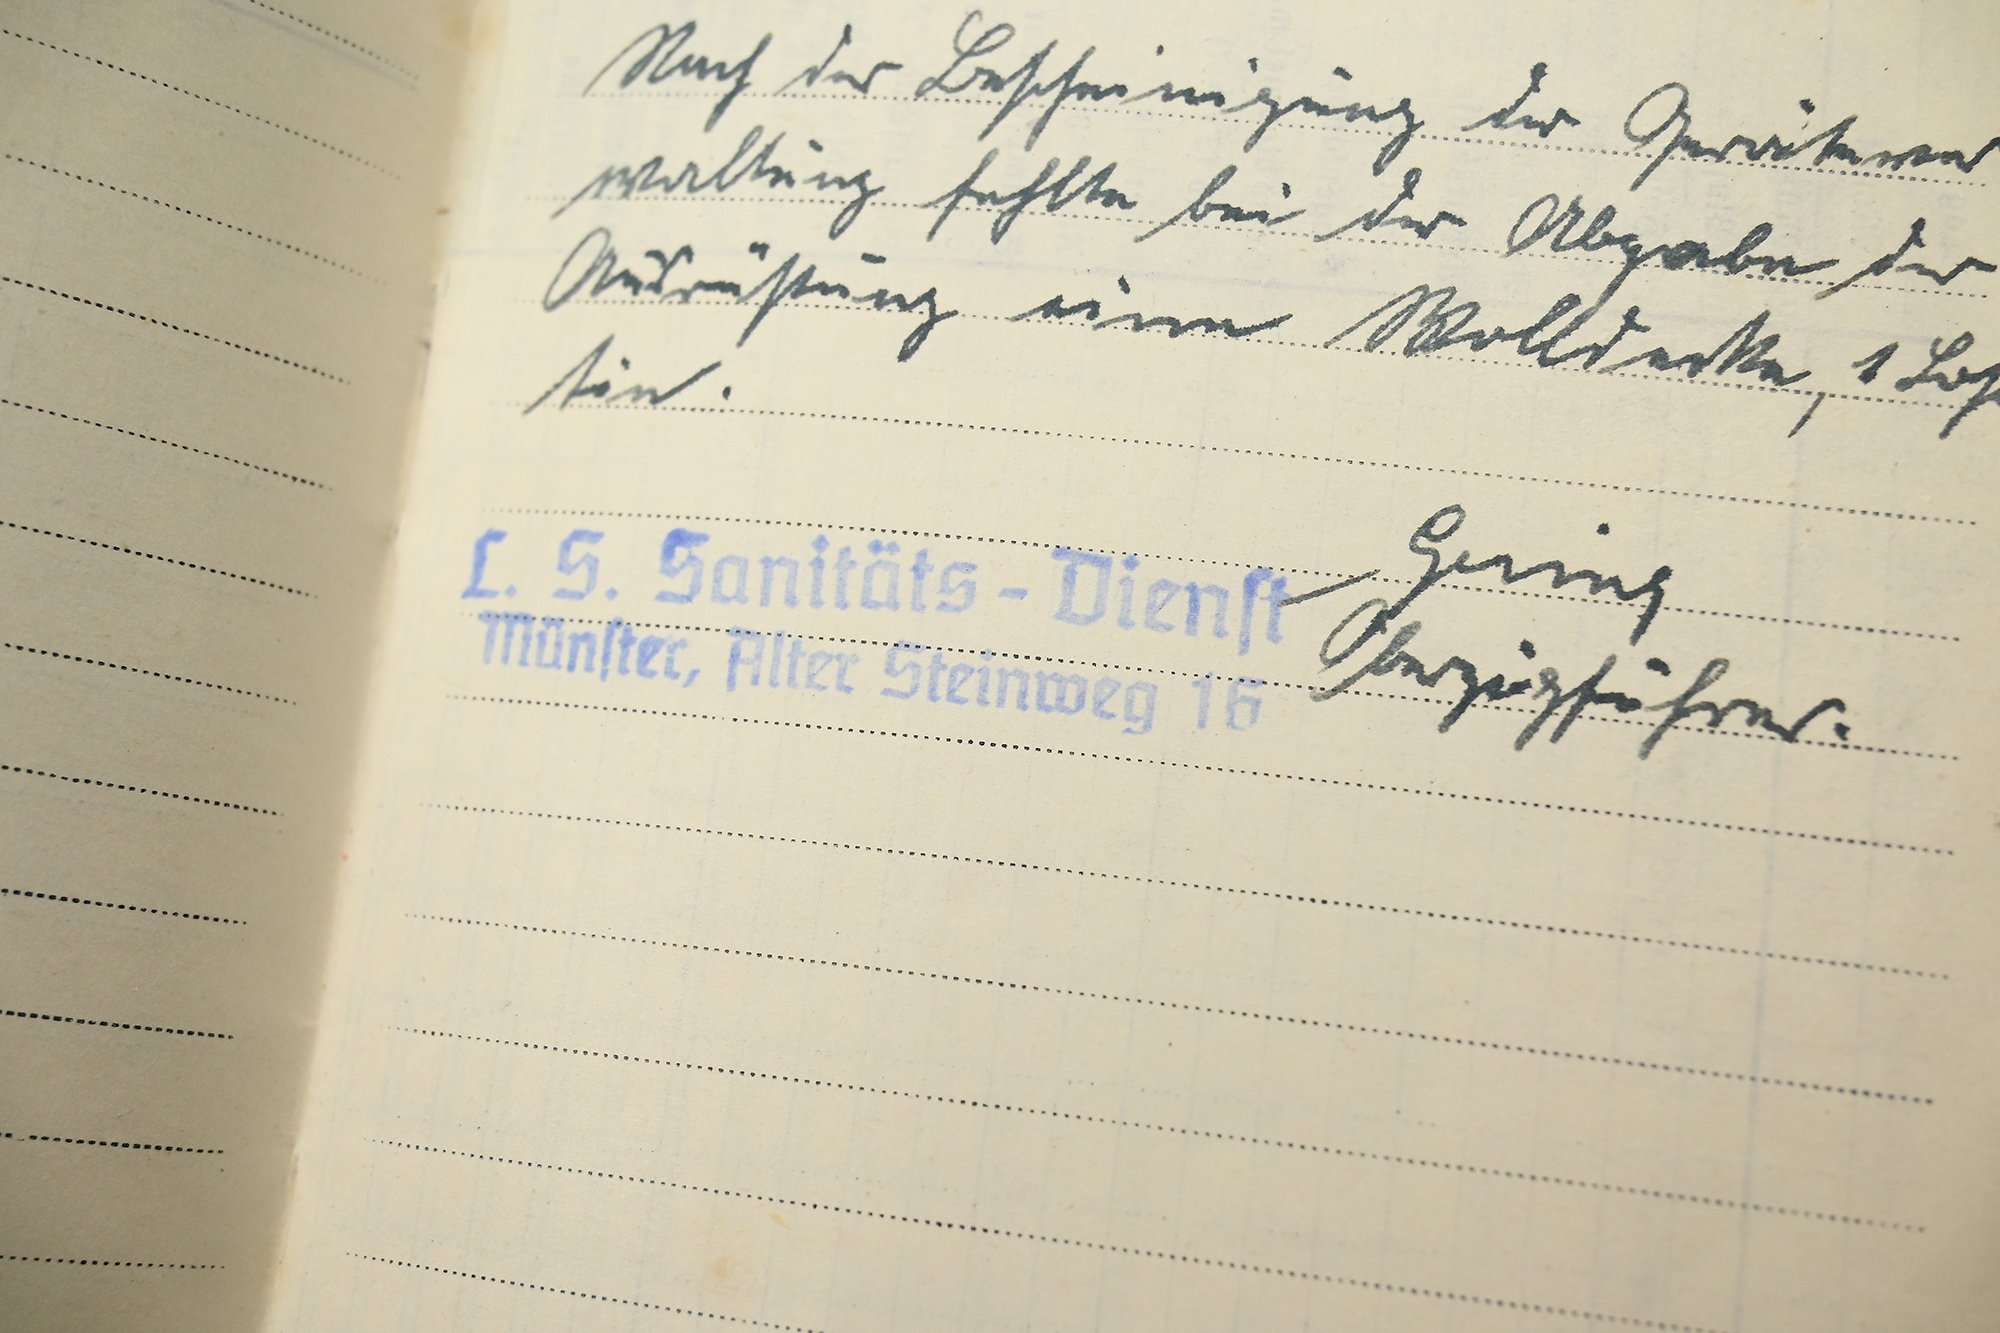 Nach der Bescheinigung der Gerätever
waltung fehlte bei der Abgabe der
Ausrüstung eine Wolldecke, 1
tin.
L. S. Sanitäts - Dienst
Münster, Alter Steinweg 16
Gering
Oberzugführer.